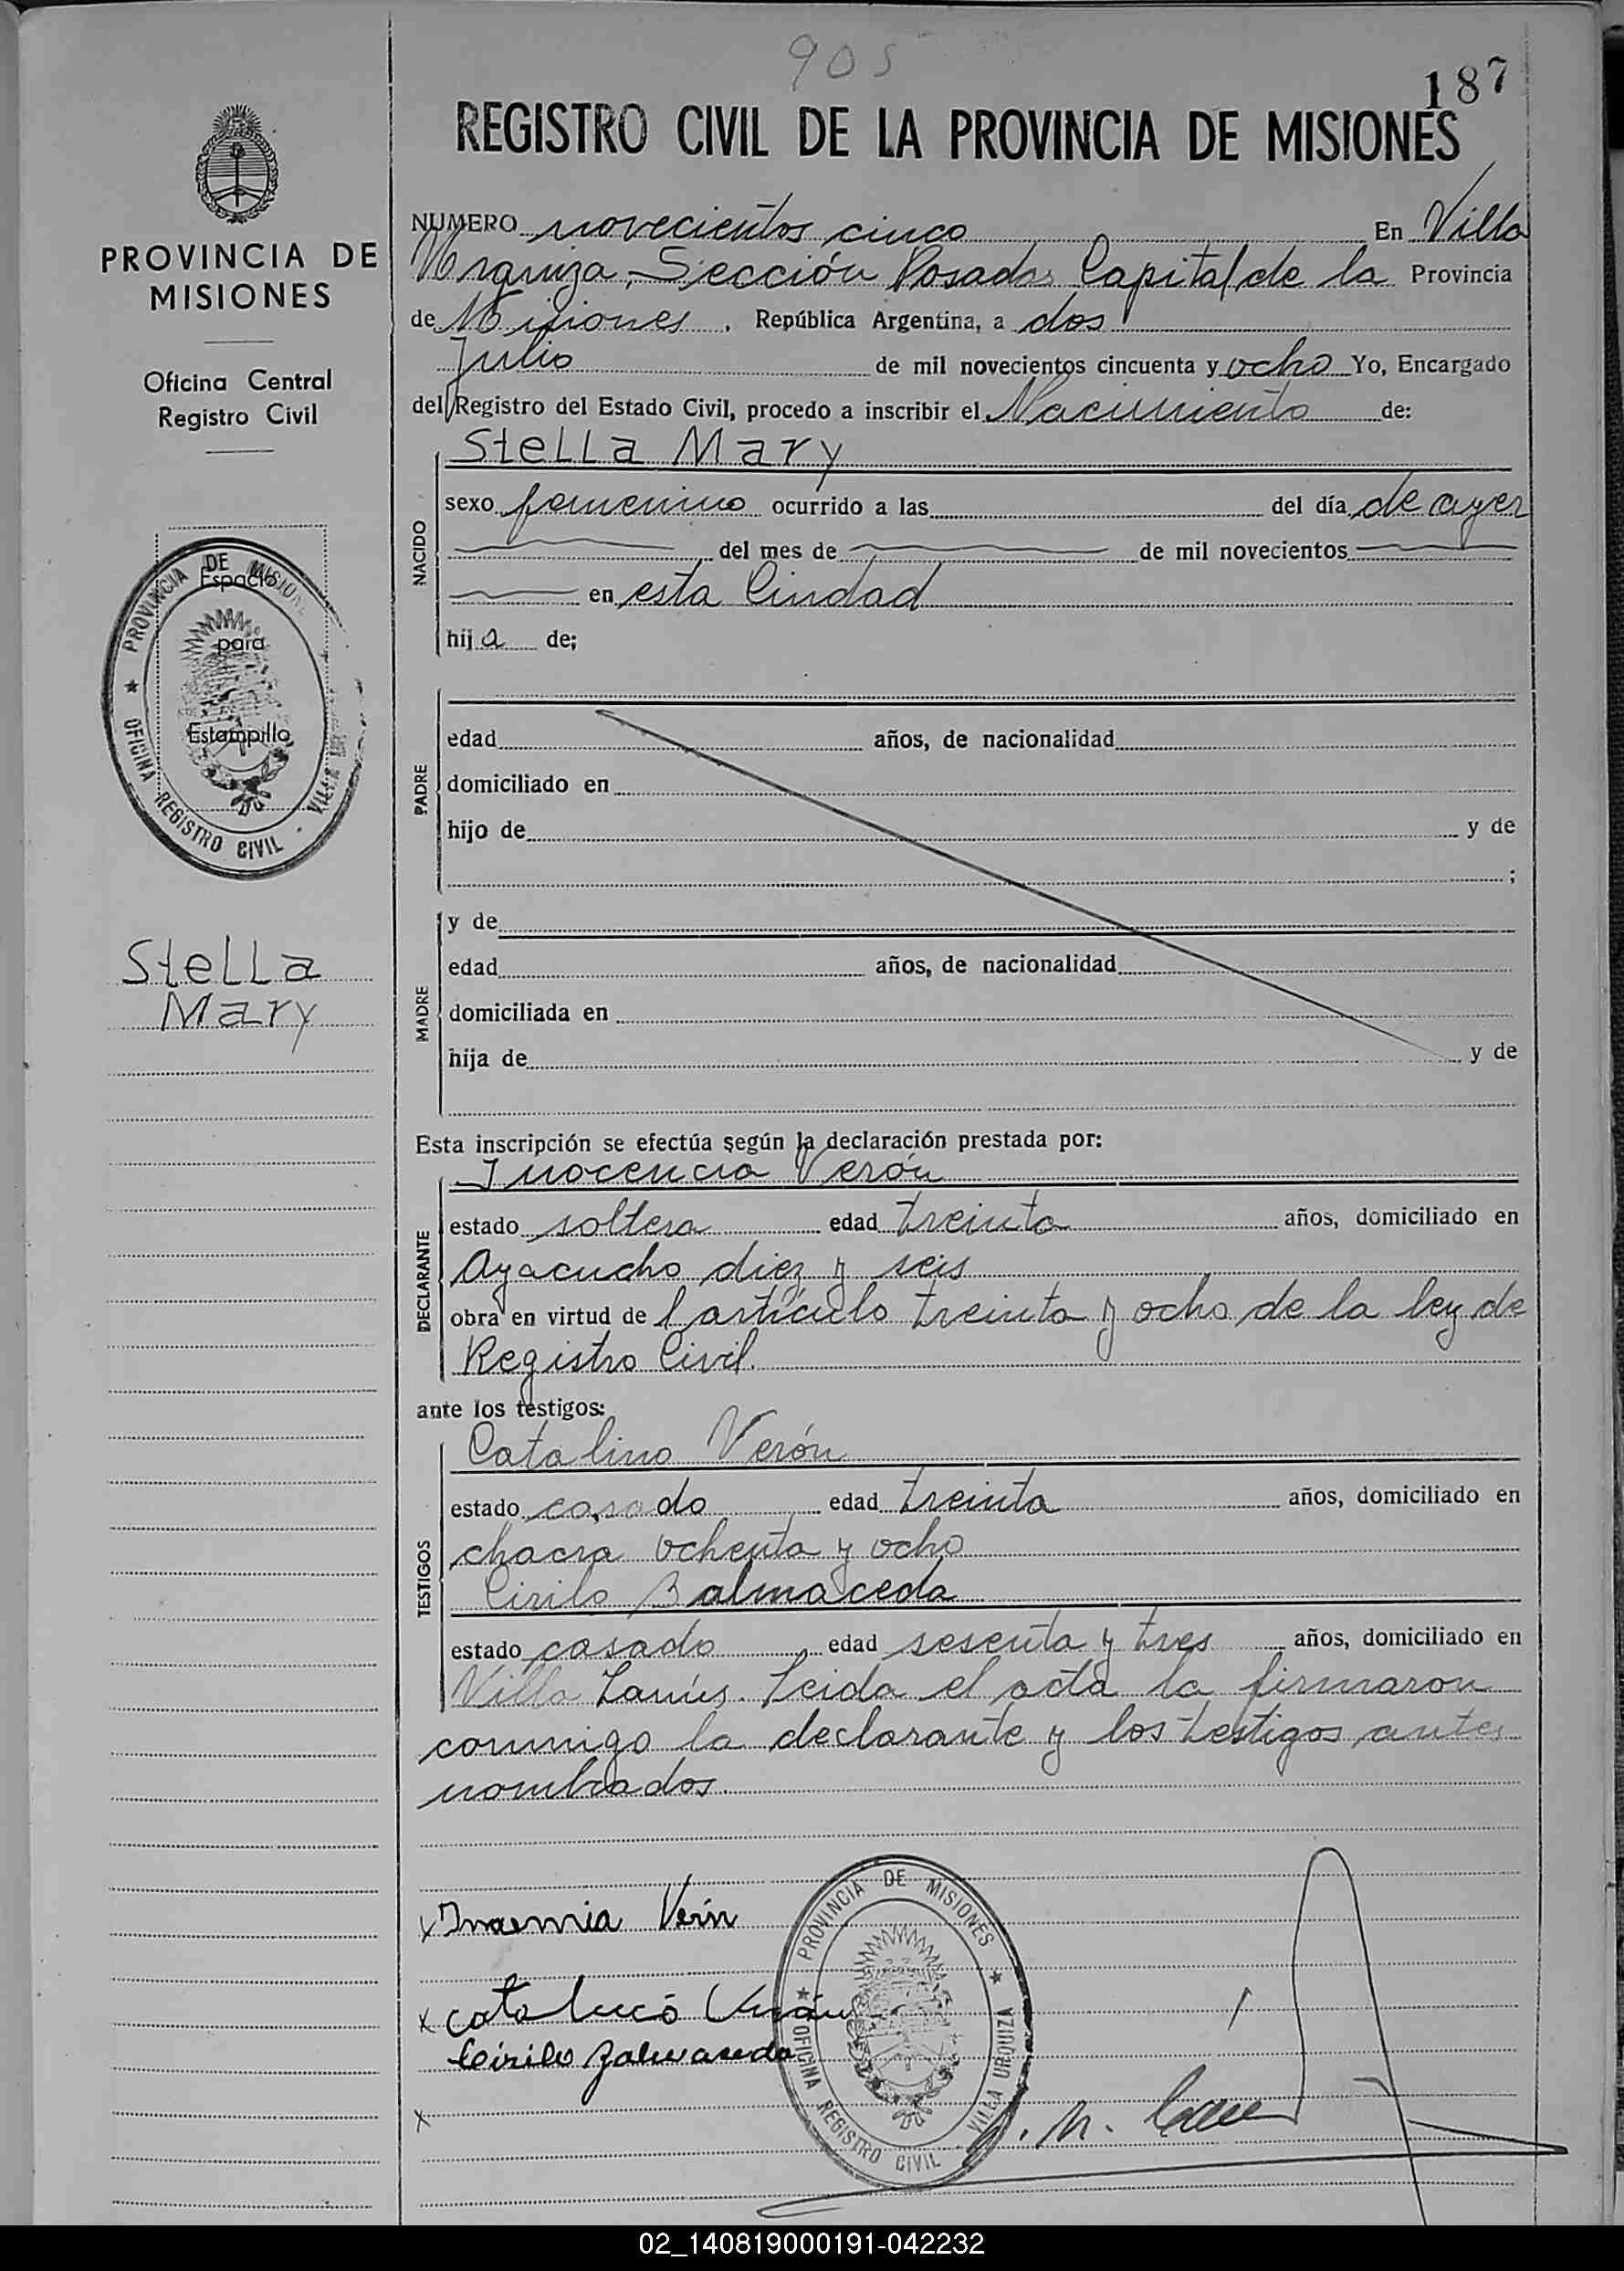 905
187
REGISTRO CIVIL DE LA PROVINCIA DE MISIONES
PROVINCIA DE
MISIONES
Oficina Central
Registro Civil
NUMERO novecientos cinco En Villa
Urquiza, Sección Posadas Capital de la Provincia
de Misiones, República Argentina, a dos
Julio de mil novecientos cincuenta y ocho Yo, Encargado
del Registro del Estado Civil, procedo a inscribir el Nacimiento de:
NACIDO
Stella Mary
sexo femenino ocurrido a las del día de ayer
del mes de de mil novecientos
en esta Ciudad
hij a de;
PROVINCIA DE MISIONES
Espacio
para
Estampilla
OFICINA REGISTRO CIVIL - VILLA
PADRE
edad años, de nacionalidad
domiciliado en
hijo de y de
;
Stella
Mary
MADRE
y de
edad años, de nacionalidad
domiciliada en
hija de y de
Esta inscripción se efectúa según la declaración prestada por:
DECLARANTE
Inocencia Verón
estado soltera edad treinta años, domiciliado en
Ayacucho diez y seis
obra en virtud de l artículo treinta y ocho de la ley de
Registro Civil.
ante los testigos:
TESTIGOS
Catalino Verón
estado casado edad treinta años, domiciliado en
chacra ochenta y ocho
Cirilo Balmaceda
estado casado edad sesenta y tres años, domiciliado en
Villa Lanús. Leida el acta la firmaron
conmigo la declarante y los testigos antes
nombrados.
x Verón
x Catalino Verón
Cirilo Balmaceda
x
PROVINCIA DE MISIONES
OFICINA REGISTRO CIVIL VILLA URQUIZA
02_140819000191-042232